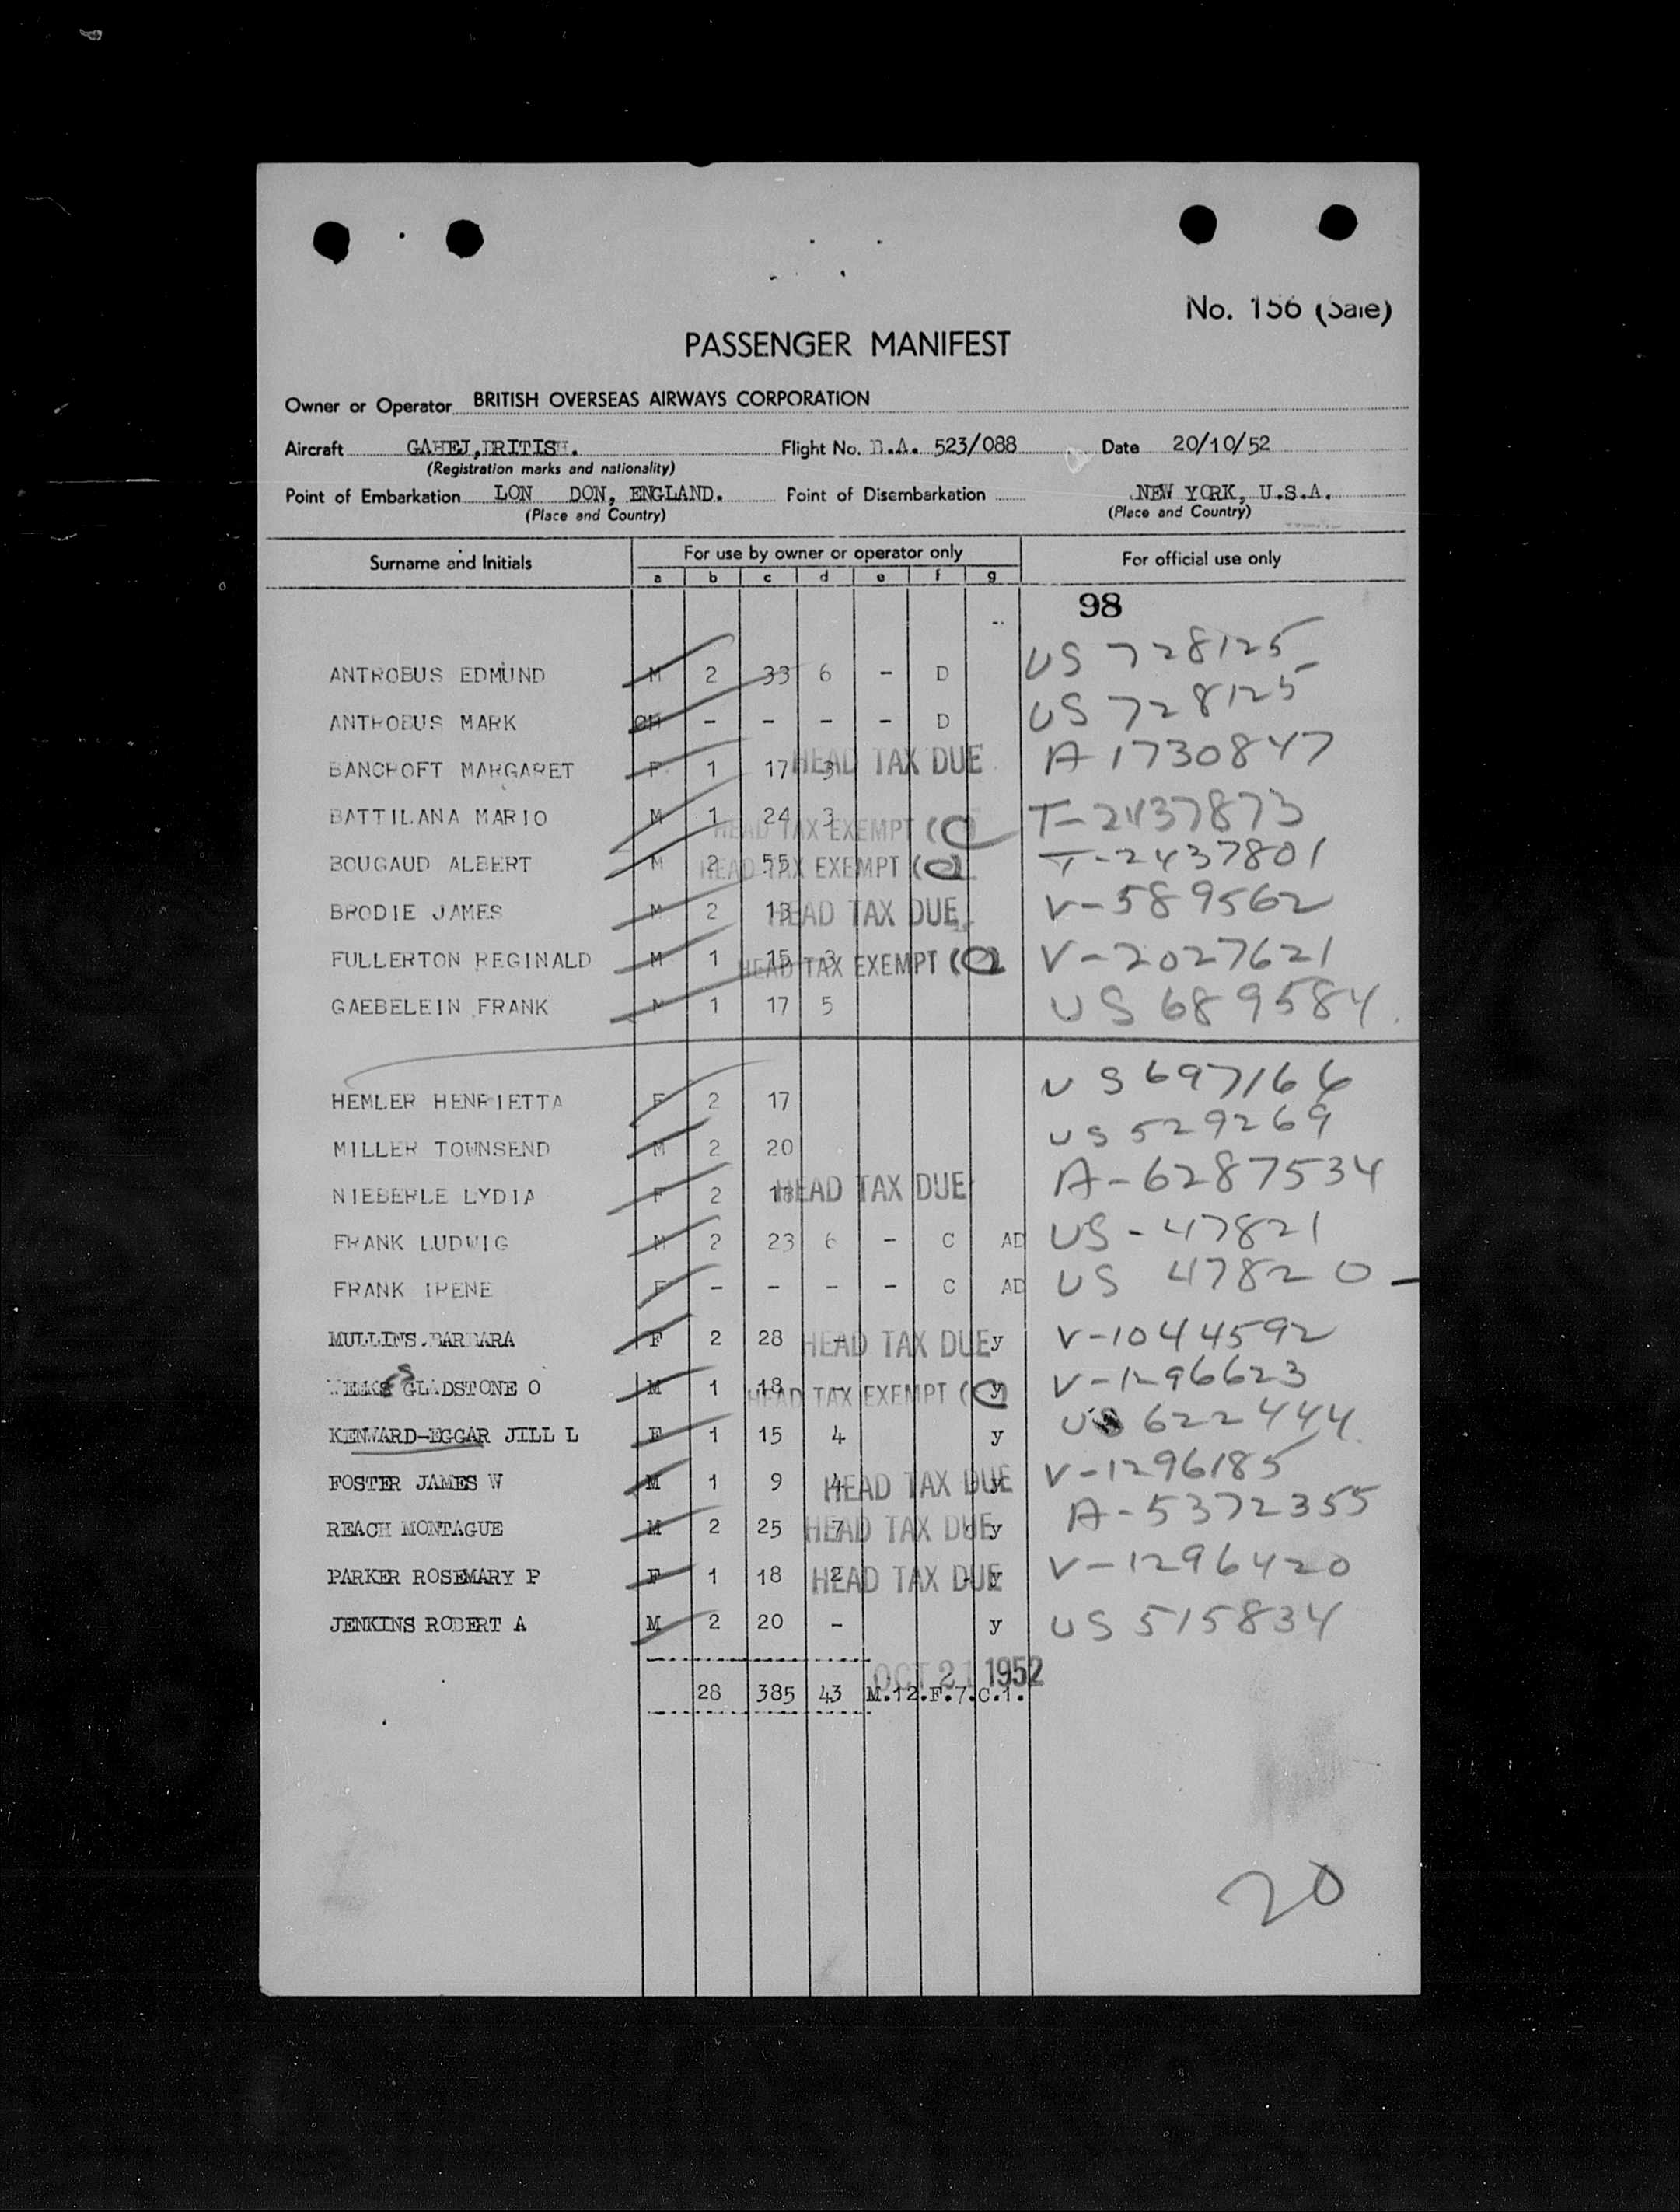 No. 156 (Sale)
PASSENGER MANIFEST
Owner or Operator BRITISH OVERSEAS AIRWAYS CORPORATION
Aircraft GAHEJ, BRITISH. Flight No. B.A. 523/088 Date 20/10/52
(Registration marks and nationality)
Point of Embarkation LON DON, ENGLAND. Point of Disembarkation NEW YORK, U.S.A.
(Place and Country) (Place and Country)
Surname and Initials For use by owner or operator only For official use only
a b c d e f g
98
ANTROBUS EDMUND M 2 33 6 - D US 728125
ANTROBUS MARK CH - - - - D US 728125
BANCROFT MARGARET F 1 17 3 HEAD TAX DUE A-1730847
BATTILANA MARIO M 1 24 3 HEAD TAX EXEMPT (C) T-2437873
BOUGAUD ALBERT M 2 55 HEAD TAX EXEMPT (C) T-2437801
BRODIE JAMES M 2 13 HEAD TAX DUE V-589562
FULLERTON REGINALD M 1 15 3 HEAD TAX EXEMPT (C) V-2027621
GAEBELEIN FRANK M 1 17 5 US 689584
HEMLER HENRIETTA F 2 17 US 697166
MILLER TOWNSEND M 2 20 US 529269
NIEBERLE LYDIA F 2 18 HEAD TAX DUE A-6287534
FRANK LUDWIG M 2 23 6 - C AD US-47821
FRANK IRENE F - - - - C AD US 47820
MULLINS.BARBARA F 2 28 - HEAD TAX DUE y V-1044592
GLADSTONE O M 1 18 - HEAD TAX EXEMPT (C) y V-1296623
KENWARD-EGGAR JILL L F 1 15 4 y US 622444
FOSTER JAMES W M 1 9 4 HEAD TAX DUE y V-1296185
REACH MONTAGUE M 2 25 7 HEAD TAX DUE y A-5372355
PARKER ROSEMARY P F 1 18 2 HEAD TAX DUE y V-1296420
JENKINS ROBERT A M 2 20 - y US 515834
OCT 21 1952
28 385 43 M.12.F.7.C.1.
20